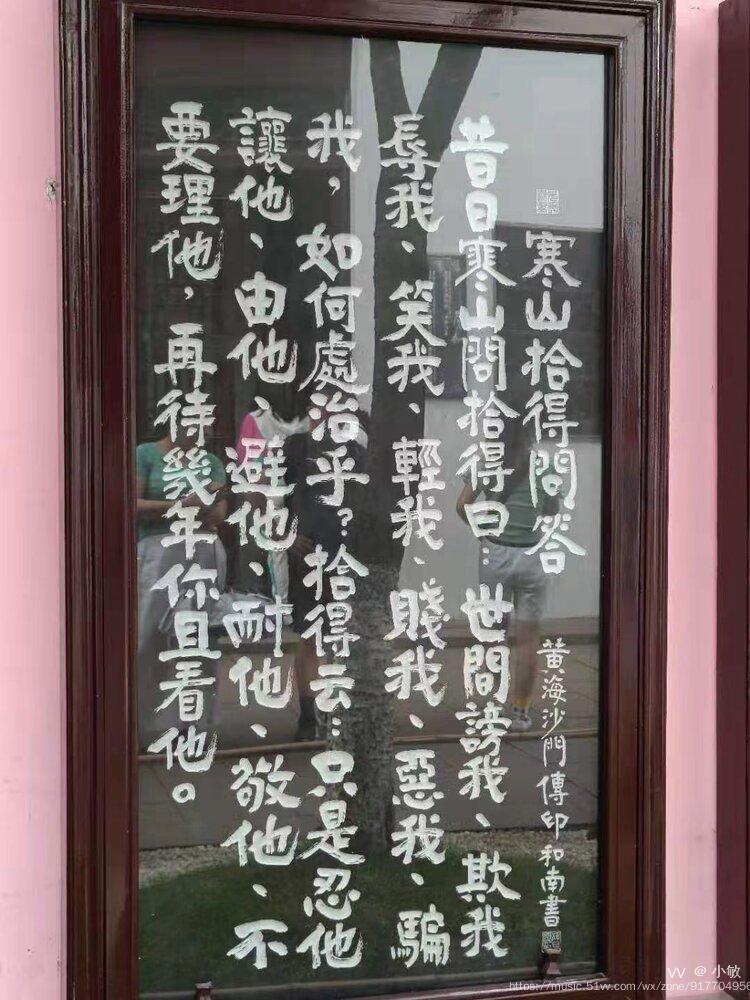 寒山拾得問答
黄海沙門傳印和南書
昔日寒山問拾得曰：世間謗我、欺我
辱我、笑我、輕我、賤我、惡我、騙
我，如何處治乎？拾得云：只是忍他
讓他、由他、避他、耐他、敬他、不
要理他，再待幾年你且看他。
VV @ 小敏
https://music.51vv.com/wx/zone/917704956